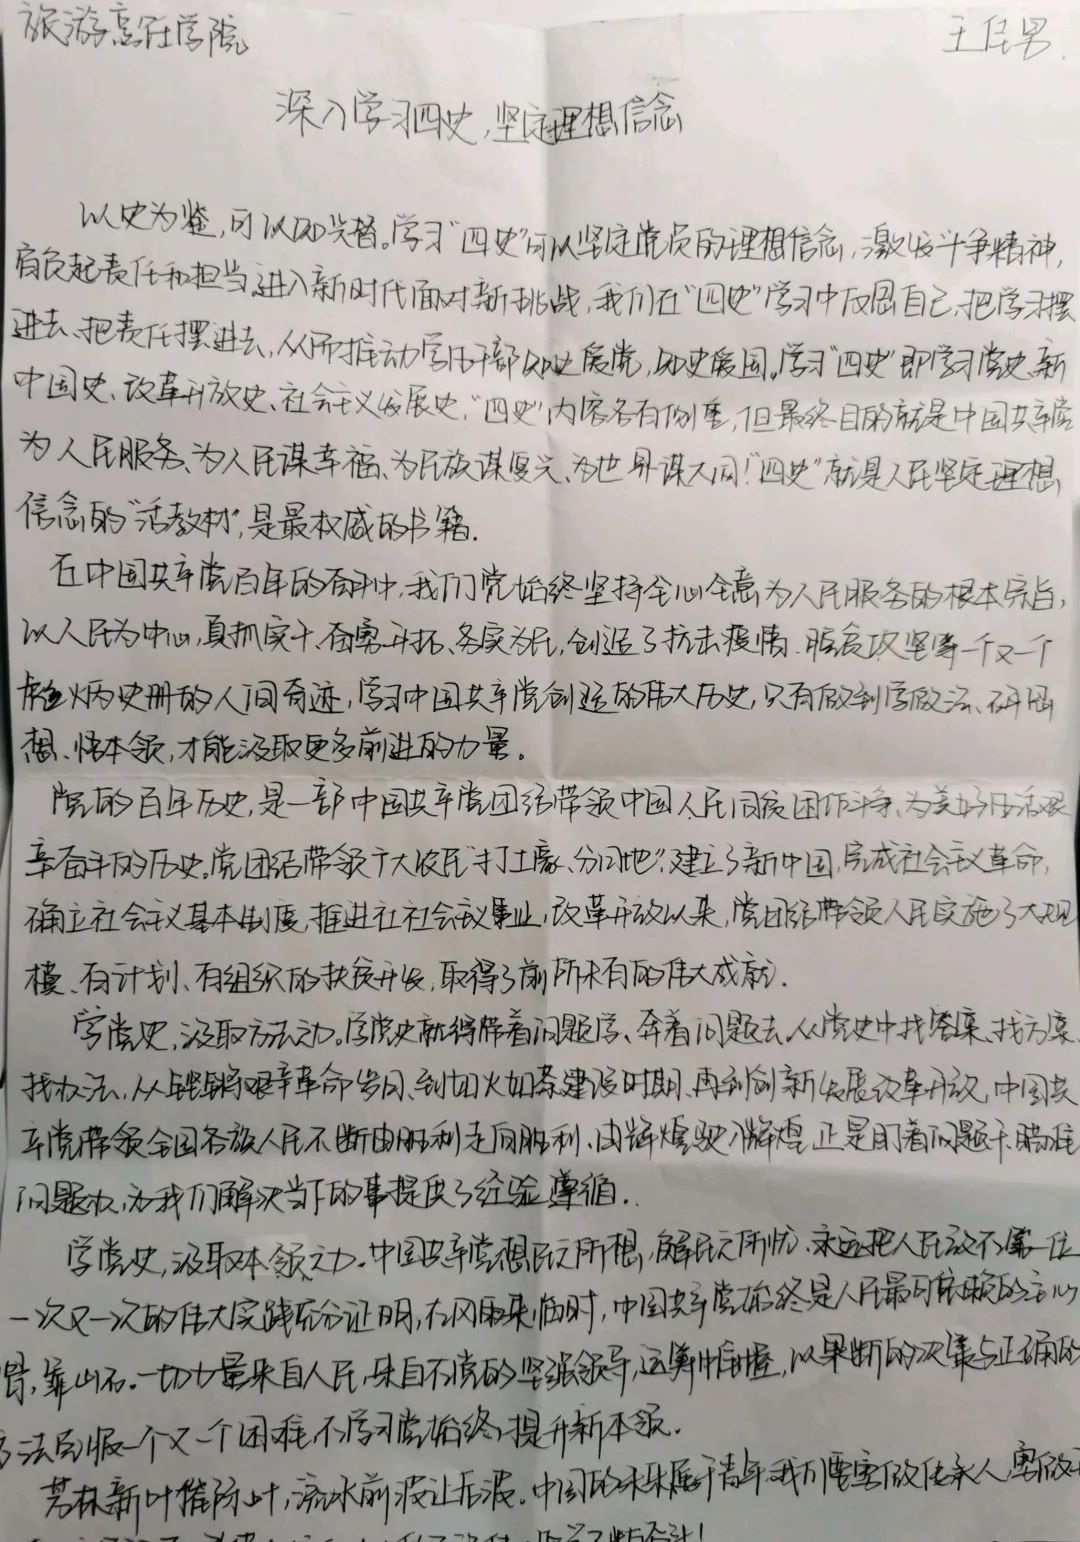 旅游烹饪学院 王任男
深入学习四史,坚定理想信念
以史为鉴,可以知兴替。学习“四史”可以坚定党员的理想信念,激发斗争精神,
肩负起责任和担当。进入新时代面对新挑战,我们在“四史”学习中反思自己,把学习摆
进去、把责任摆进去,从而推动学员干部知史爱党,知史爱国。学习“四史”即学习党史、新
中国史、改革开放史、社会主义发展史,“四史”内容各有侧重,但最终目的就是中国共产党
为人民服务、为人民谋幸福、为民族谋复兴、为世界谋大同!“四史”就是人民坚定理想
信念的“活教材”,是最权威的书籍.
在中国共产党百年的奋斗中,我们党始终坚持全心全意为人民服务的根本宗旨,
以人民为中心,真抓实干、奋勇开拓、务实为民,创造了抗击疫情、脱贫攻坚等一个又一个
彪炳史册的人间奇迹,学习中国共产党创造的伟大历史,只有做到学做法、研思
想、悟本领,才能汲取更多前进的力量。
党的百年历史,是一部中国共产党团结带领中国人民同贫困作斗争、为美好生活艰
辛奋斗的历史。党团结带领广大农民“打土豪、分田地”,建立了新中国,完成社会主义革命,
确立社会主义基本制度,推进社社会主义事业,改革开放以来,党团结带领人民实施了大规
模、有计划、有组织的扶贫开发,取得了前所未有的伟大成就.
学党史,汲取方法力。学党史就得带着问题学、奔着问题去,从党史中找答案、找方案、
找办法,从峥嵘艰辛革命岁月、到如火如荼建设时期、再到创新发展改革开放,中国共
产党带领全国各族人民不断由胜利走向胜利、由辉煌驶入辉煌,正是盯着问题干、瞄准
问题改,为我们解决当下的事提供了经验遵循.
学党史,汲取本领力.中国共产党想民之所想,解民之所忧、永远把人民放在第一位
一次又一次的伟大实践充分证明,在风雨来临时,中国共产党始终是人民最可依赖的主心
骨,靠山石.一切力量来自人民,来自于党的坚强领导,运筹帷幄,以果断的决策与正确的
方法克服一个又一个困难,在学习党始终,提升新本领.
芳林新叶催陈叶,流水前波让后波。中国的未来属于青年,我们要做传承人,要做